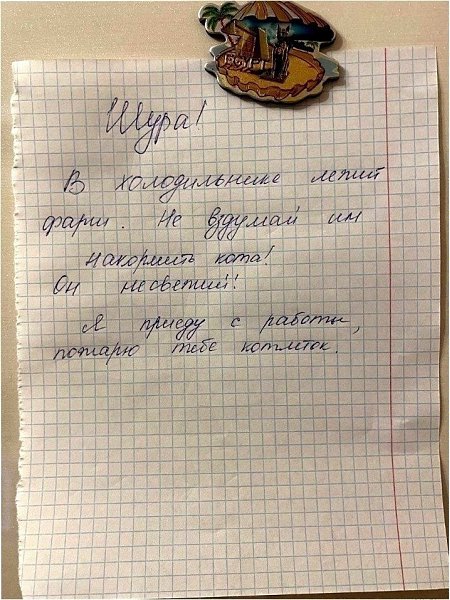 EGYPT
Шура!
В холодильнике лежит
фарш. Не вздумай им
накормить кота!
Он несвежий!!
Я приеду с работы,
пожарю тебе котлеток.